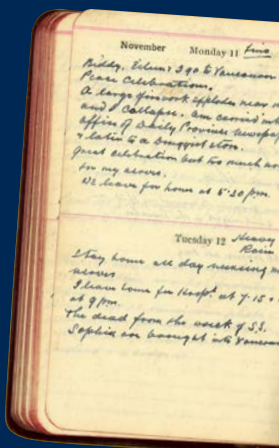 November Monday 11 Fine
Biddy, Eileen & I go to Vancouver
Peace Celebrations.
A large firework explodes near
and I collapse. Am carried into
office of Daily Province
& later to a druggist store.
Great celebration but too much
for my nerves.
We leave for home at 5.30 pm.
Tuesday 12 Heavy Rain
Stay home all day nursing
nerves
I leave home for Hospt at 7.15
at 9 pm.
The dead from the wreck of S.S.
Sophia are brought into